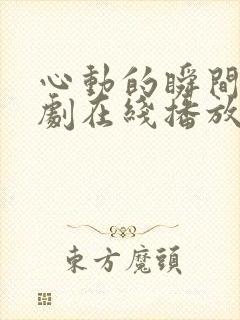 心動的瞬間
劇在綫播放
東方魔頭